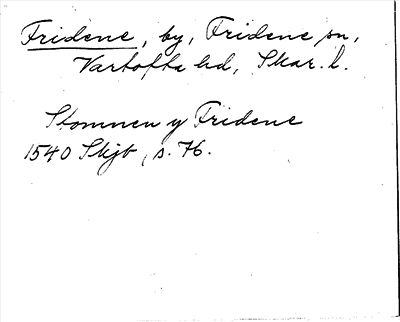 Fridene, by, Fridene sn,
Vartofta hd, Skar. l.
Stomnen y Fridene
1540 Skjb, s. 76.